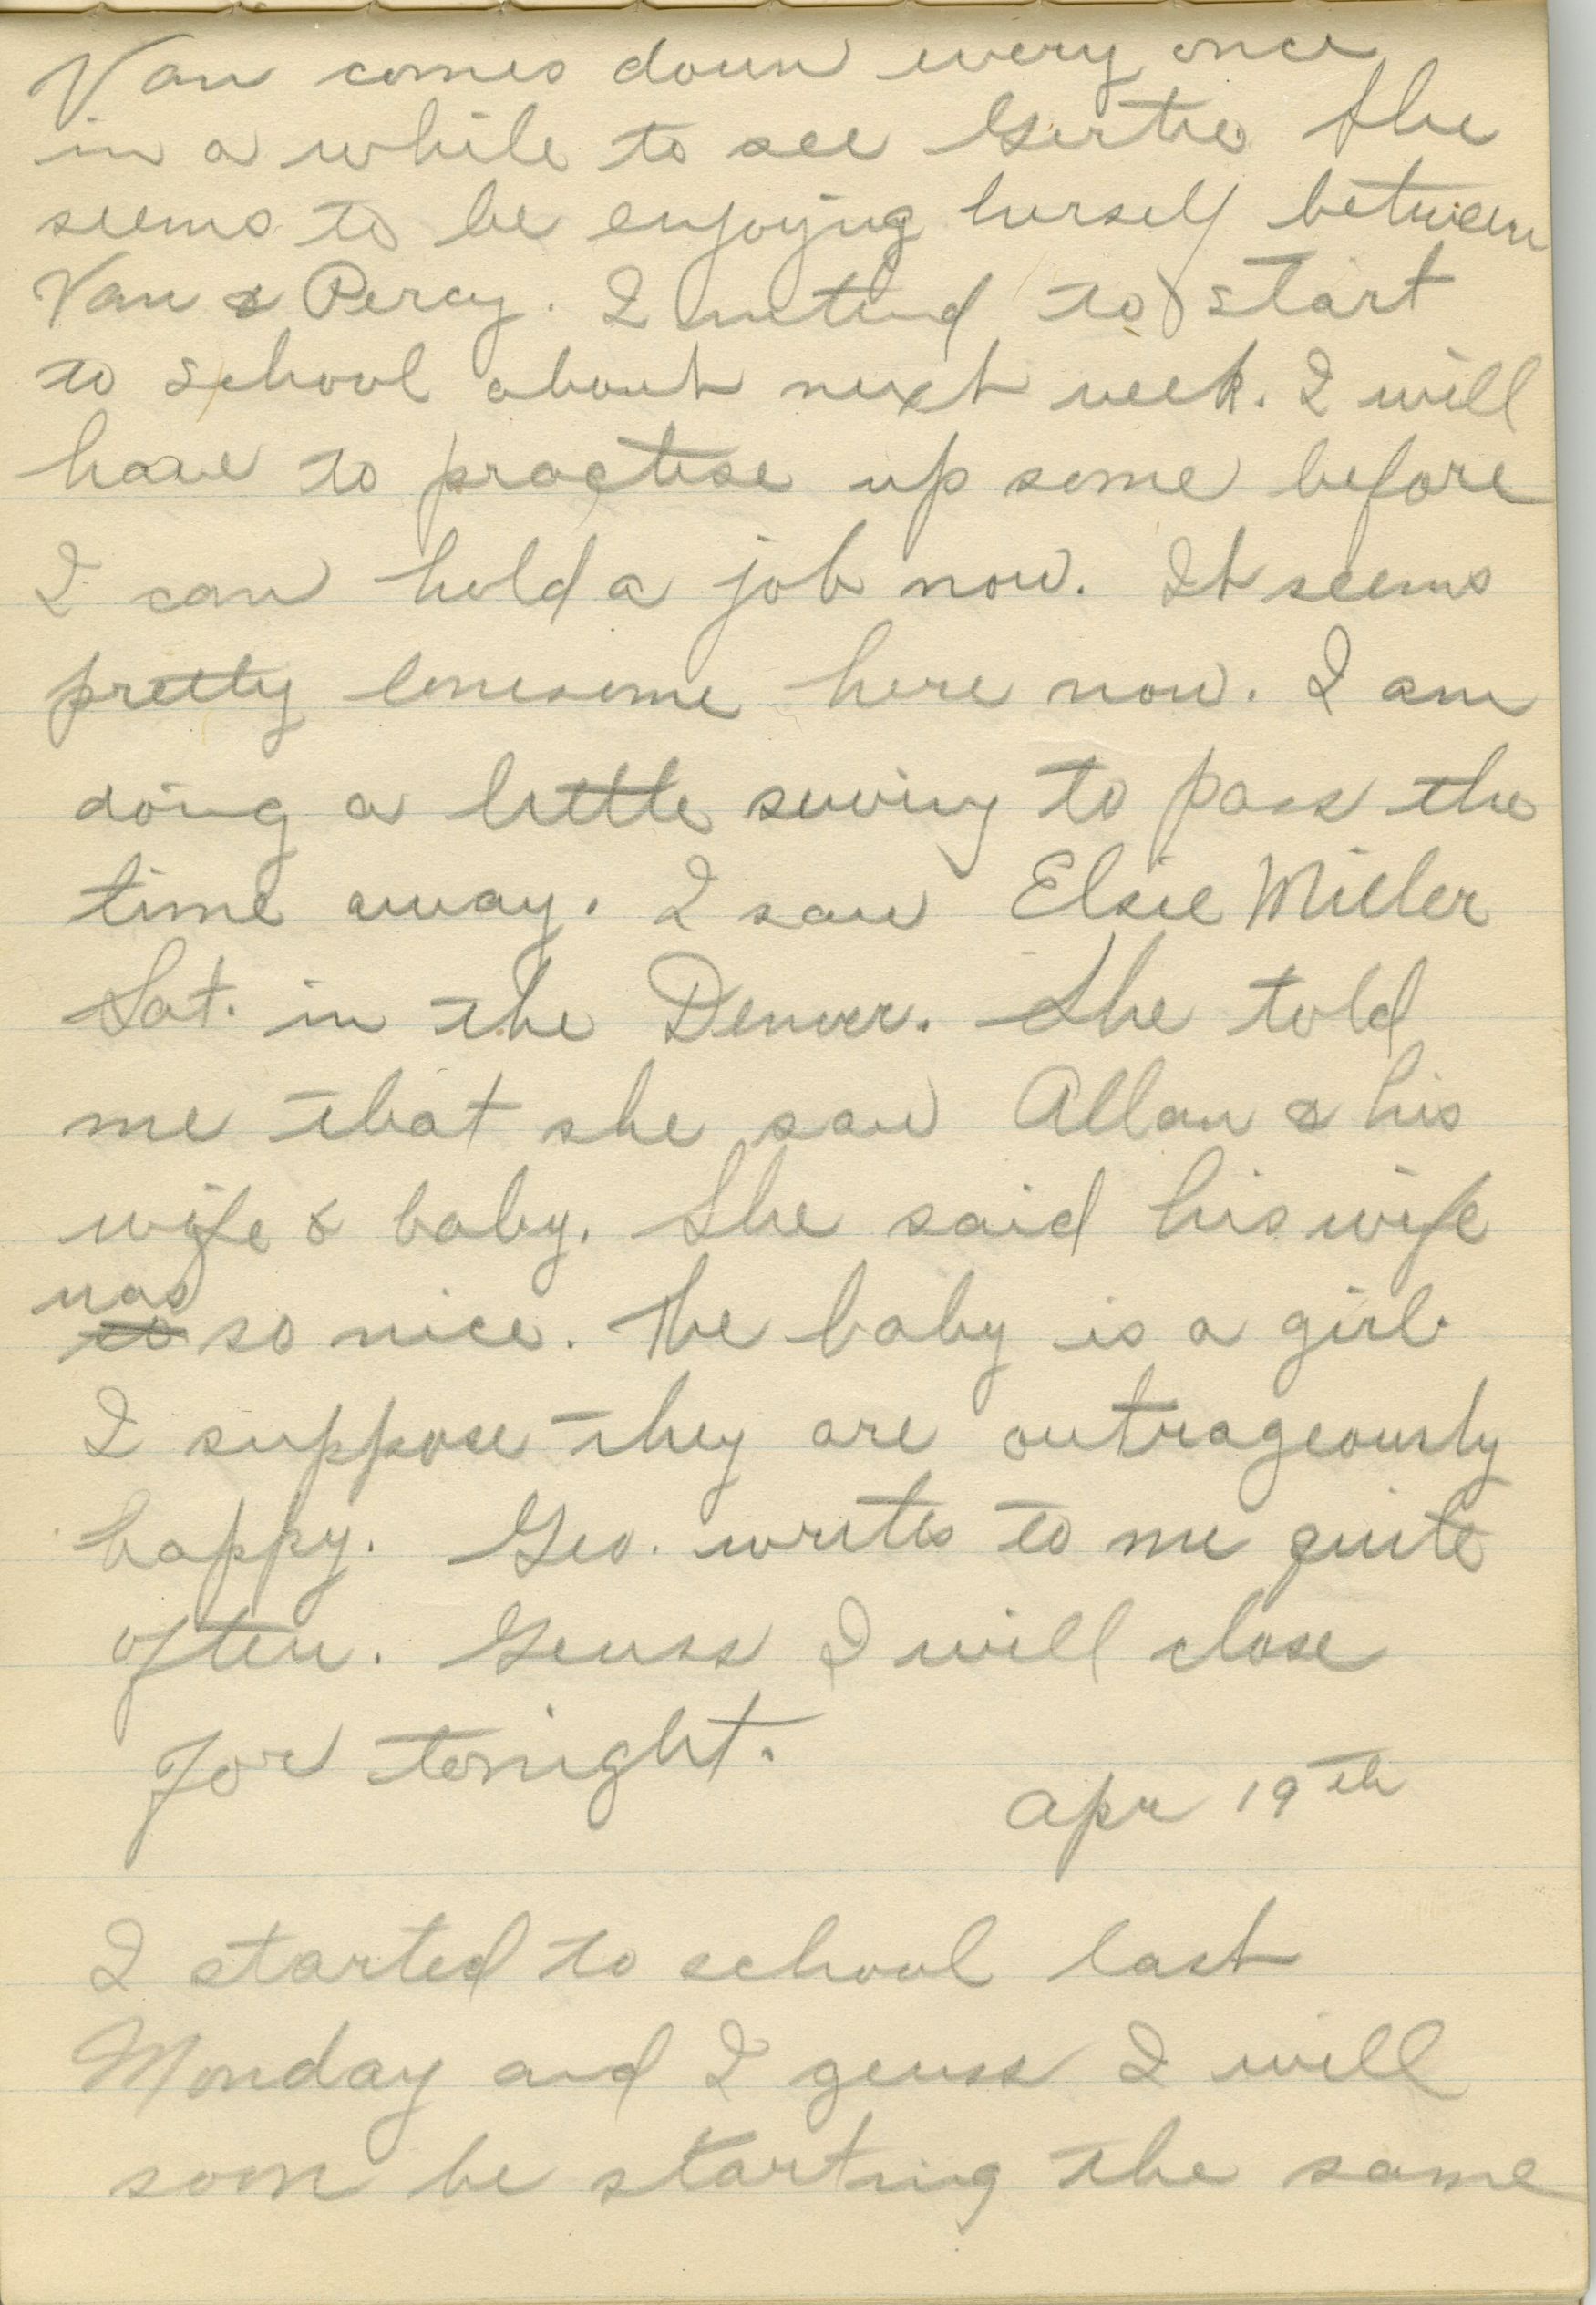 Van comes down every once
in a while to see Gertie She
seems to be enjoying herself between
Van & Percy. I intend to start
to school about next week. I will
have to practise up some before
I can hold a job now. It seems
pretty lonesome here now. I am
doing a little sewing to pass the
time away. I saw Elsie Miller
Sat. in the Denver. She told
me that she saw Allan & his
wife & baby. She said his wife
was
so nice. The baby is a girl.
I suppose they are outrageously
happy. Geo. writes to me quite
often. Geuss I will close
for tonight.
Apr 19th
I started to school last
Monday and I geuss I will
soon be starting the same